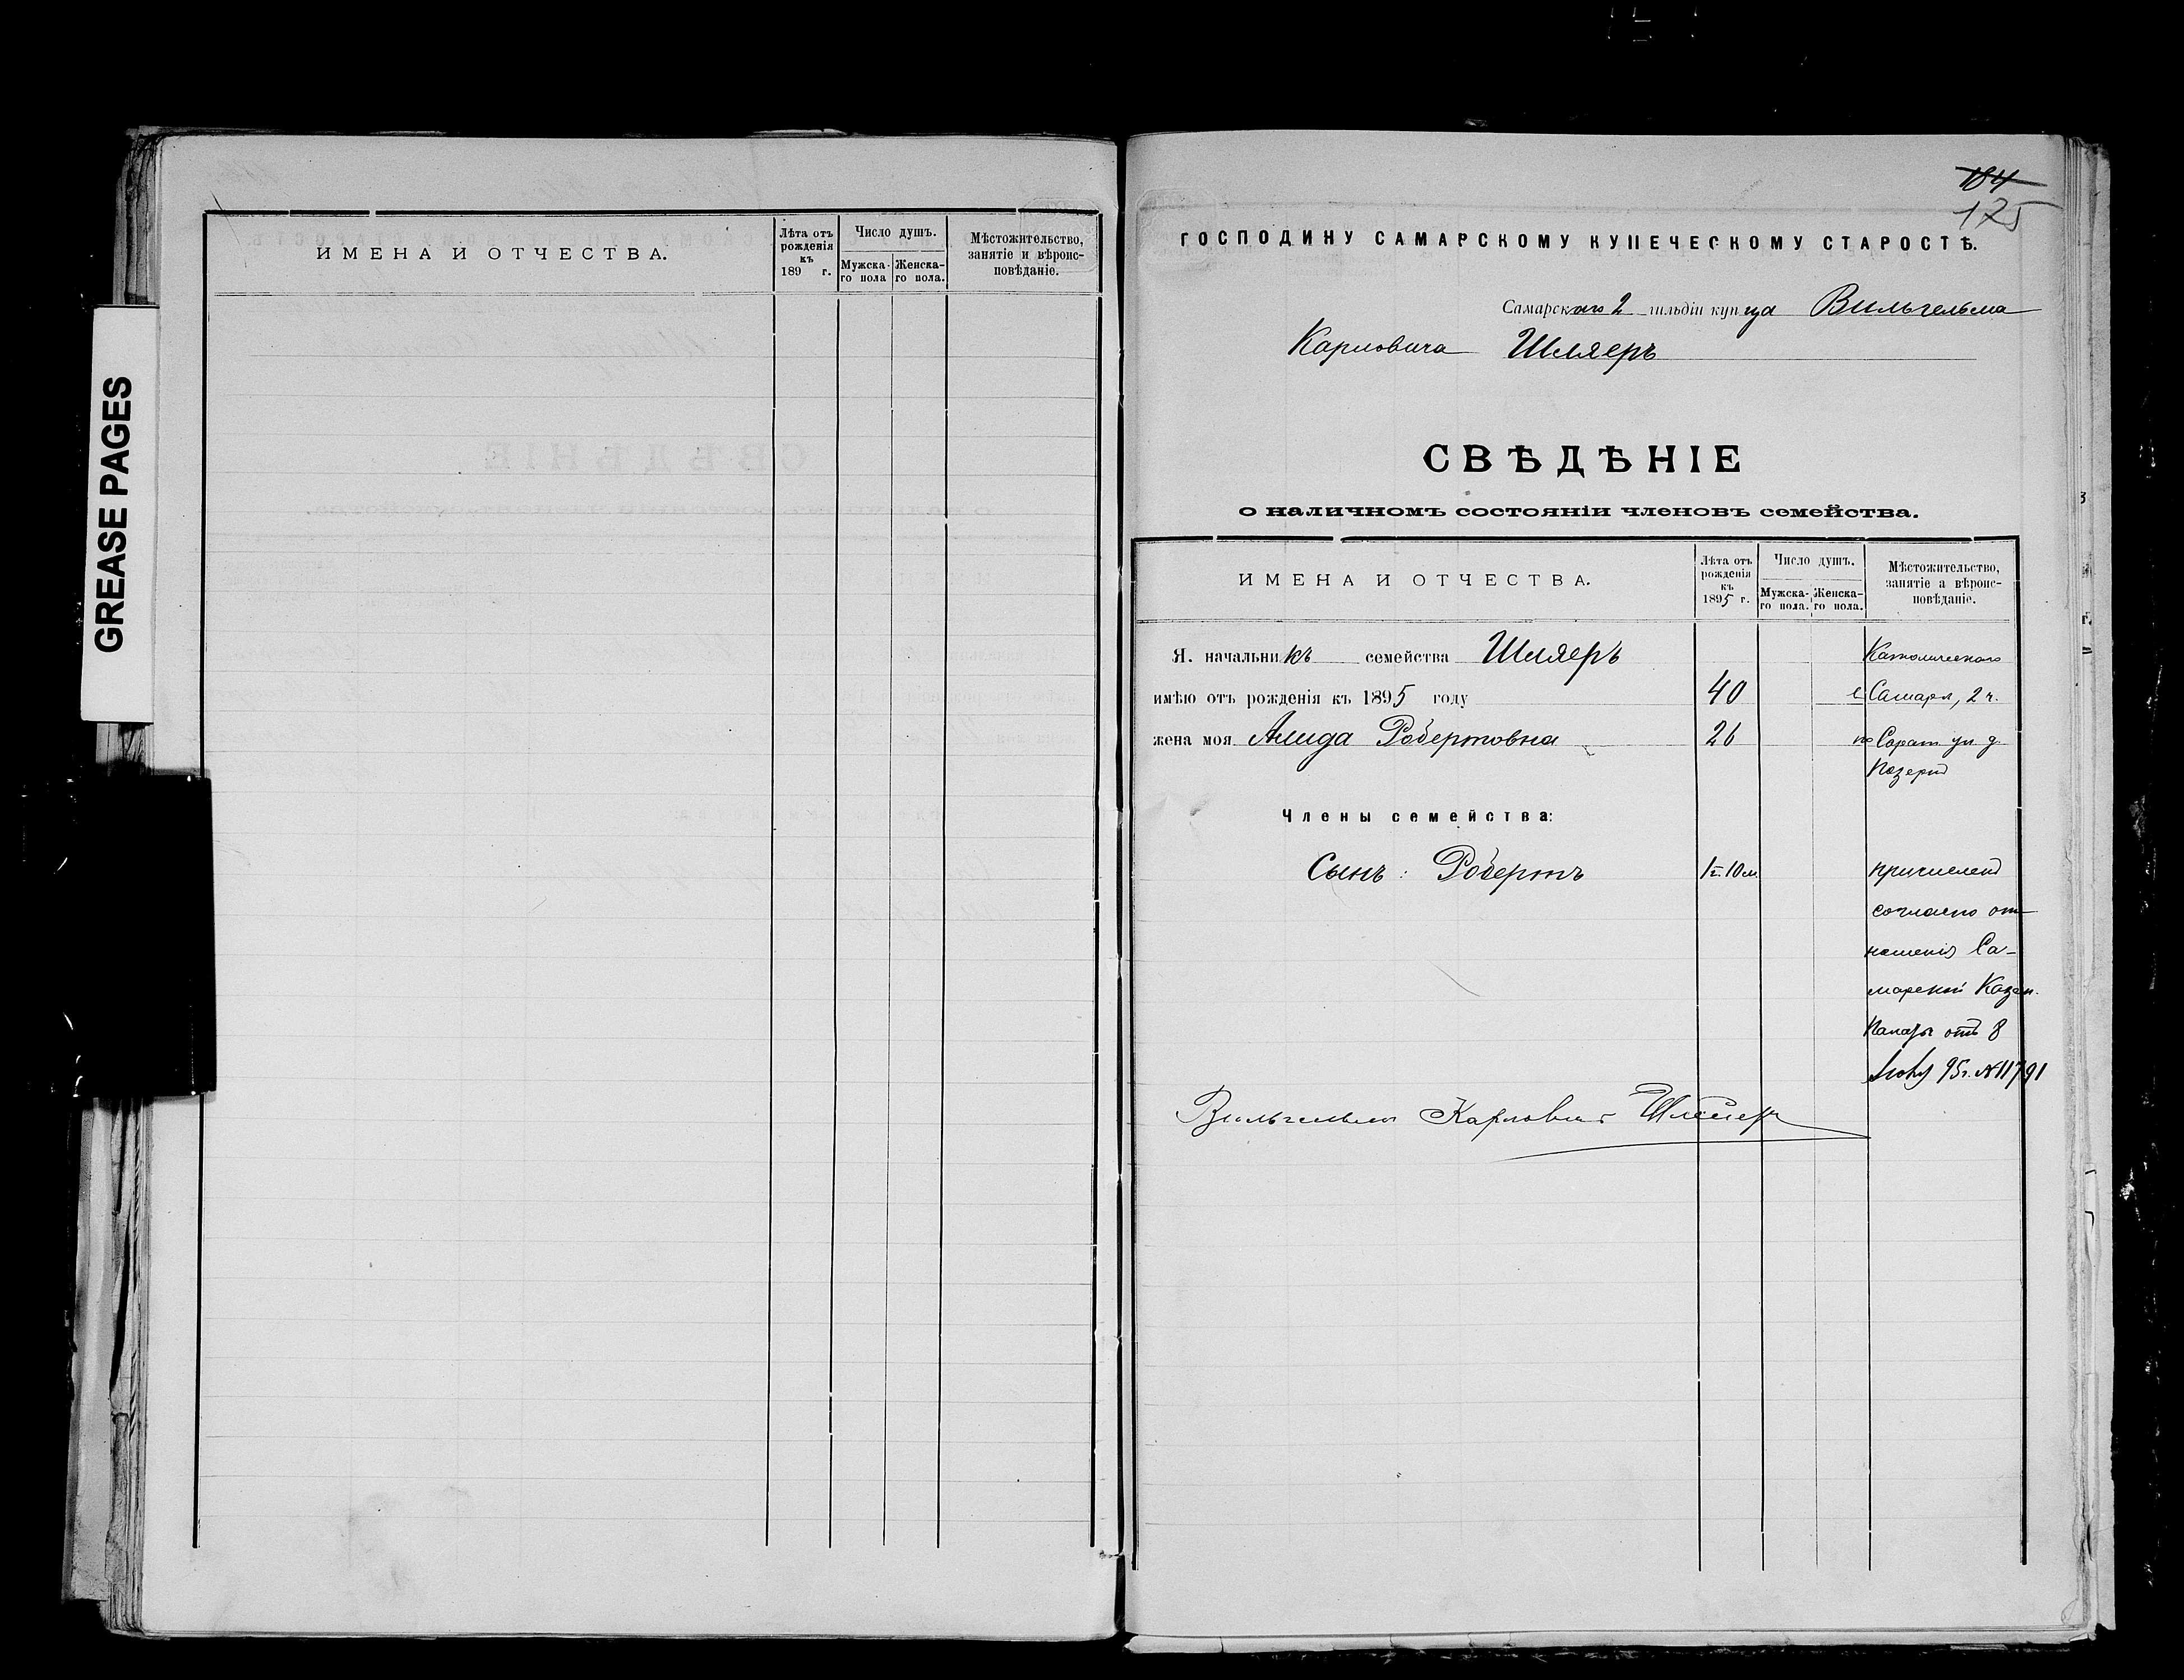 GREASE PAGES
ИМЕНА И ОТЧЕСТВА.
Лѣта отъ рожденія къ 189 г.
Число душъ.
Мужска-го пола
Женска-го пола.
Мѣстожительство, занятіе и вѣроис-повѣданіе.
184
175
ГОСПОДИНУ САМАРСКОМУ КУПЕЧЕСКОМУ СТАРОСТѢ.
Самарскаго 2 гильдіи купца Вильгельма
Карловича Шляеръ
СВѢДѢНІЕ
о наличномъ состояніи членовъ семейства.
ИМЕНА И ОТЧЕСТВА.
Лѣта отъ рожденія къ 1895 г.
Число душъ.
Мужска-го пола.
Женска-го пола.
Мѣстожительство, занятіе а вѣроис-повѣданіе.
Я. начальникъ семейства Шляеръ Католическаго
имѣю отъ рожденія къ 1895 году 40 Самара, 2 ч.
жена моя Алида Робертовна 26 по Сарат. ул. д.
Члены семейства:
Сынъ: Робертъ 1 г. 10 м. причисленъ
согласно от-
ношенія Са-
марской Казен.
Палаты отъ 8
95 г. № 11791
Вильгельмъ Карловичъ Шлеиеръ